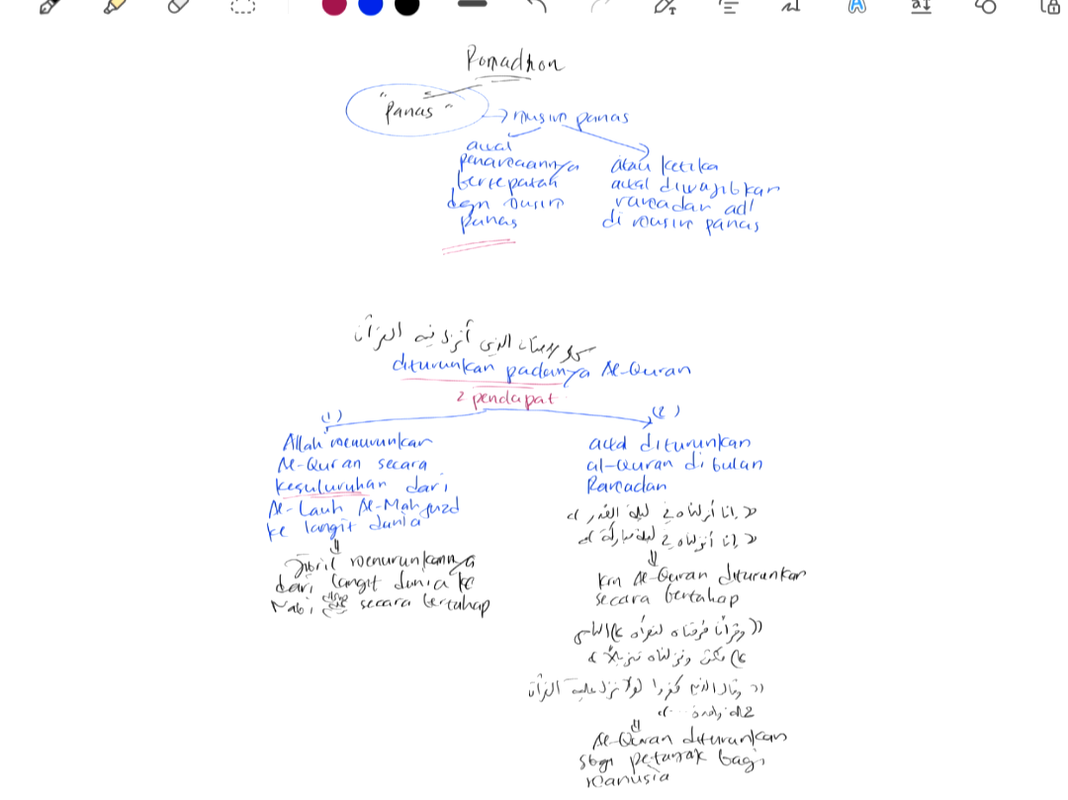 Romadhon
"Panas"
→ musim panas
awal
penamaannya
bertepatan
dgn musim
panas
atau ketika
awal diwajibkan
ramadan adl
di musim panas
الذي أنزل فيه القرآن
diturunkan padanya Al-Quran
2 pendapat
(1)
Allah menurunkan
Al-Quran secara
kesuluruhan dari
Al-Lauh Al-Mahfuzd
ke langit dunia
⇓
Jibril menurunkannya
dari langit dunia ke
Nabi ﷺ secara bertahap
(2)
awal diturunkan
al-Quran di bulan
Ramadan
« إنا أنزلناه في ليلة القدر »
« إنا أنزلناه في ليلة مباركة »
⇓
krn Al-Quran diturunkan
secara bertahap
« وقرآنا فرقناه لتقرأه على الناس
على مكث ونزلناه تنزيلا »
« وقال الذين كفروا لولا نزل عليه القرآن
جملة واحدة ... »
⇓
Al-Quran diturunkan
sbgn petunjuk bagi
manusia